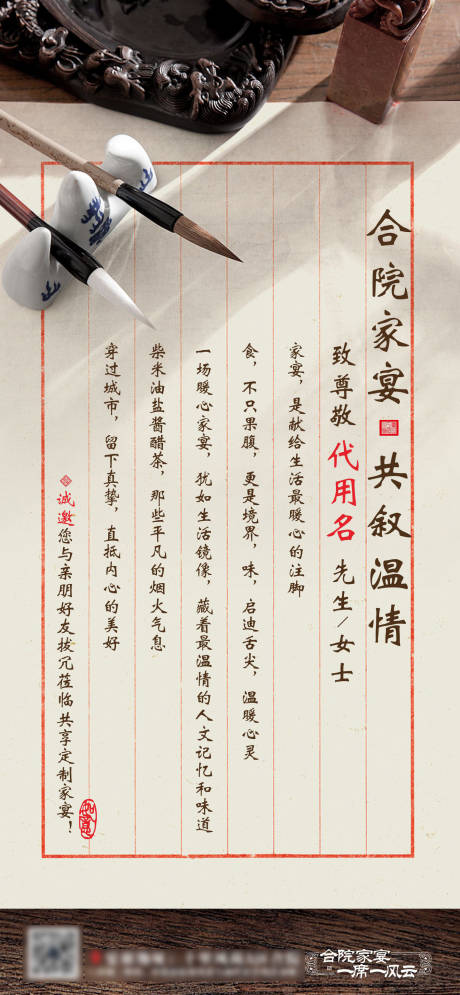 合院家宴 共叙温情
致尊敬 代用名 先生/女士
家宴，是献给生活最暖心的注脚
食，不只果腹，更是境界，味，启迪舌尖，温暖心灵
一场暖心家宴，犹如生活镜像，藏着最温情的人文记忆和味道
柴米油盐酱醋茶，那些平凡的烟火气息
穿过城市，留下真挚，直抵内心的美好
诚邀您与亲朋好友拨冗莅临共享定制家宴！
合院家宴
一席一风云